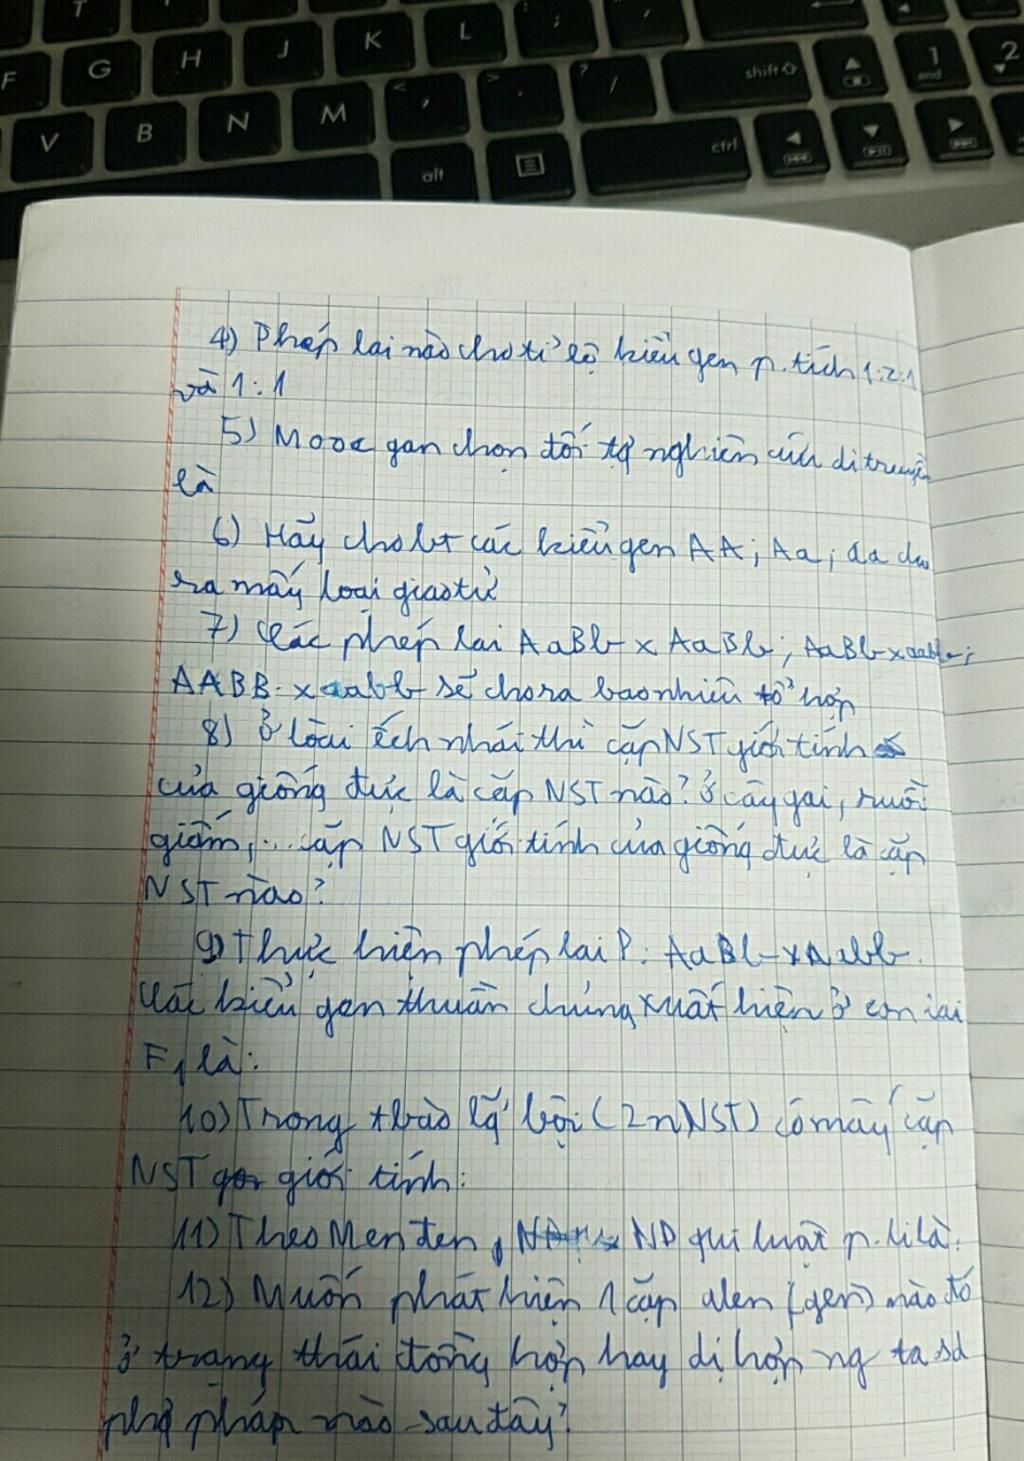 T
F G H J K L ; ,
V B N M < , > . ? / shift ⇧ 1 end 2
alt ctrl
4) Phép lai nào cho tỉ lệ kiểu gen p.tích 1:2:1
và 1:1
5) Mooc gan chọn đối tg nghiên cứu di truyền
là
6) Hãy cho bt các kiểu gen AA; Aa; aa cho
ra mấy loại giao tử
7) Các phép lai AaBb x AaBb; AaBb x aabb;
AABB x aabb sẽ cho ra bao nhiêu tổ hợp
8) Ở loài ếch nhái thì cặp NST giới tính
của giống đực là cặp NST nào? Ở cây gai, ruồi
giấm,... cặp NST giới tính của giống đực là cặp
NST nào?
9) Thực hiện phép lai P: AaBb x Aabb.
Các kiểu gen thuần chủng xuất hiện ở con lai
F1 là:
10) Trong tbào lg bội (2nNST) có mấy cặp
NST giới tính:
11) Theo Menđen, ND qui luật p.li là:
12) Muốn phát hiện 1 cặp alen (gen) nào đó
ở trạng thái đồng hợp hay dị hợp ng ta sd
phg pháp nào sau đây?